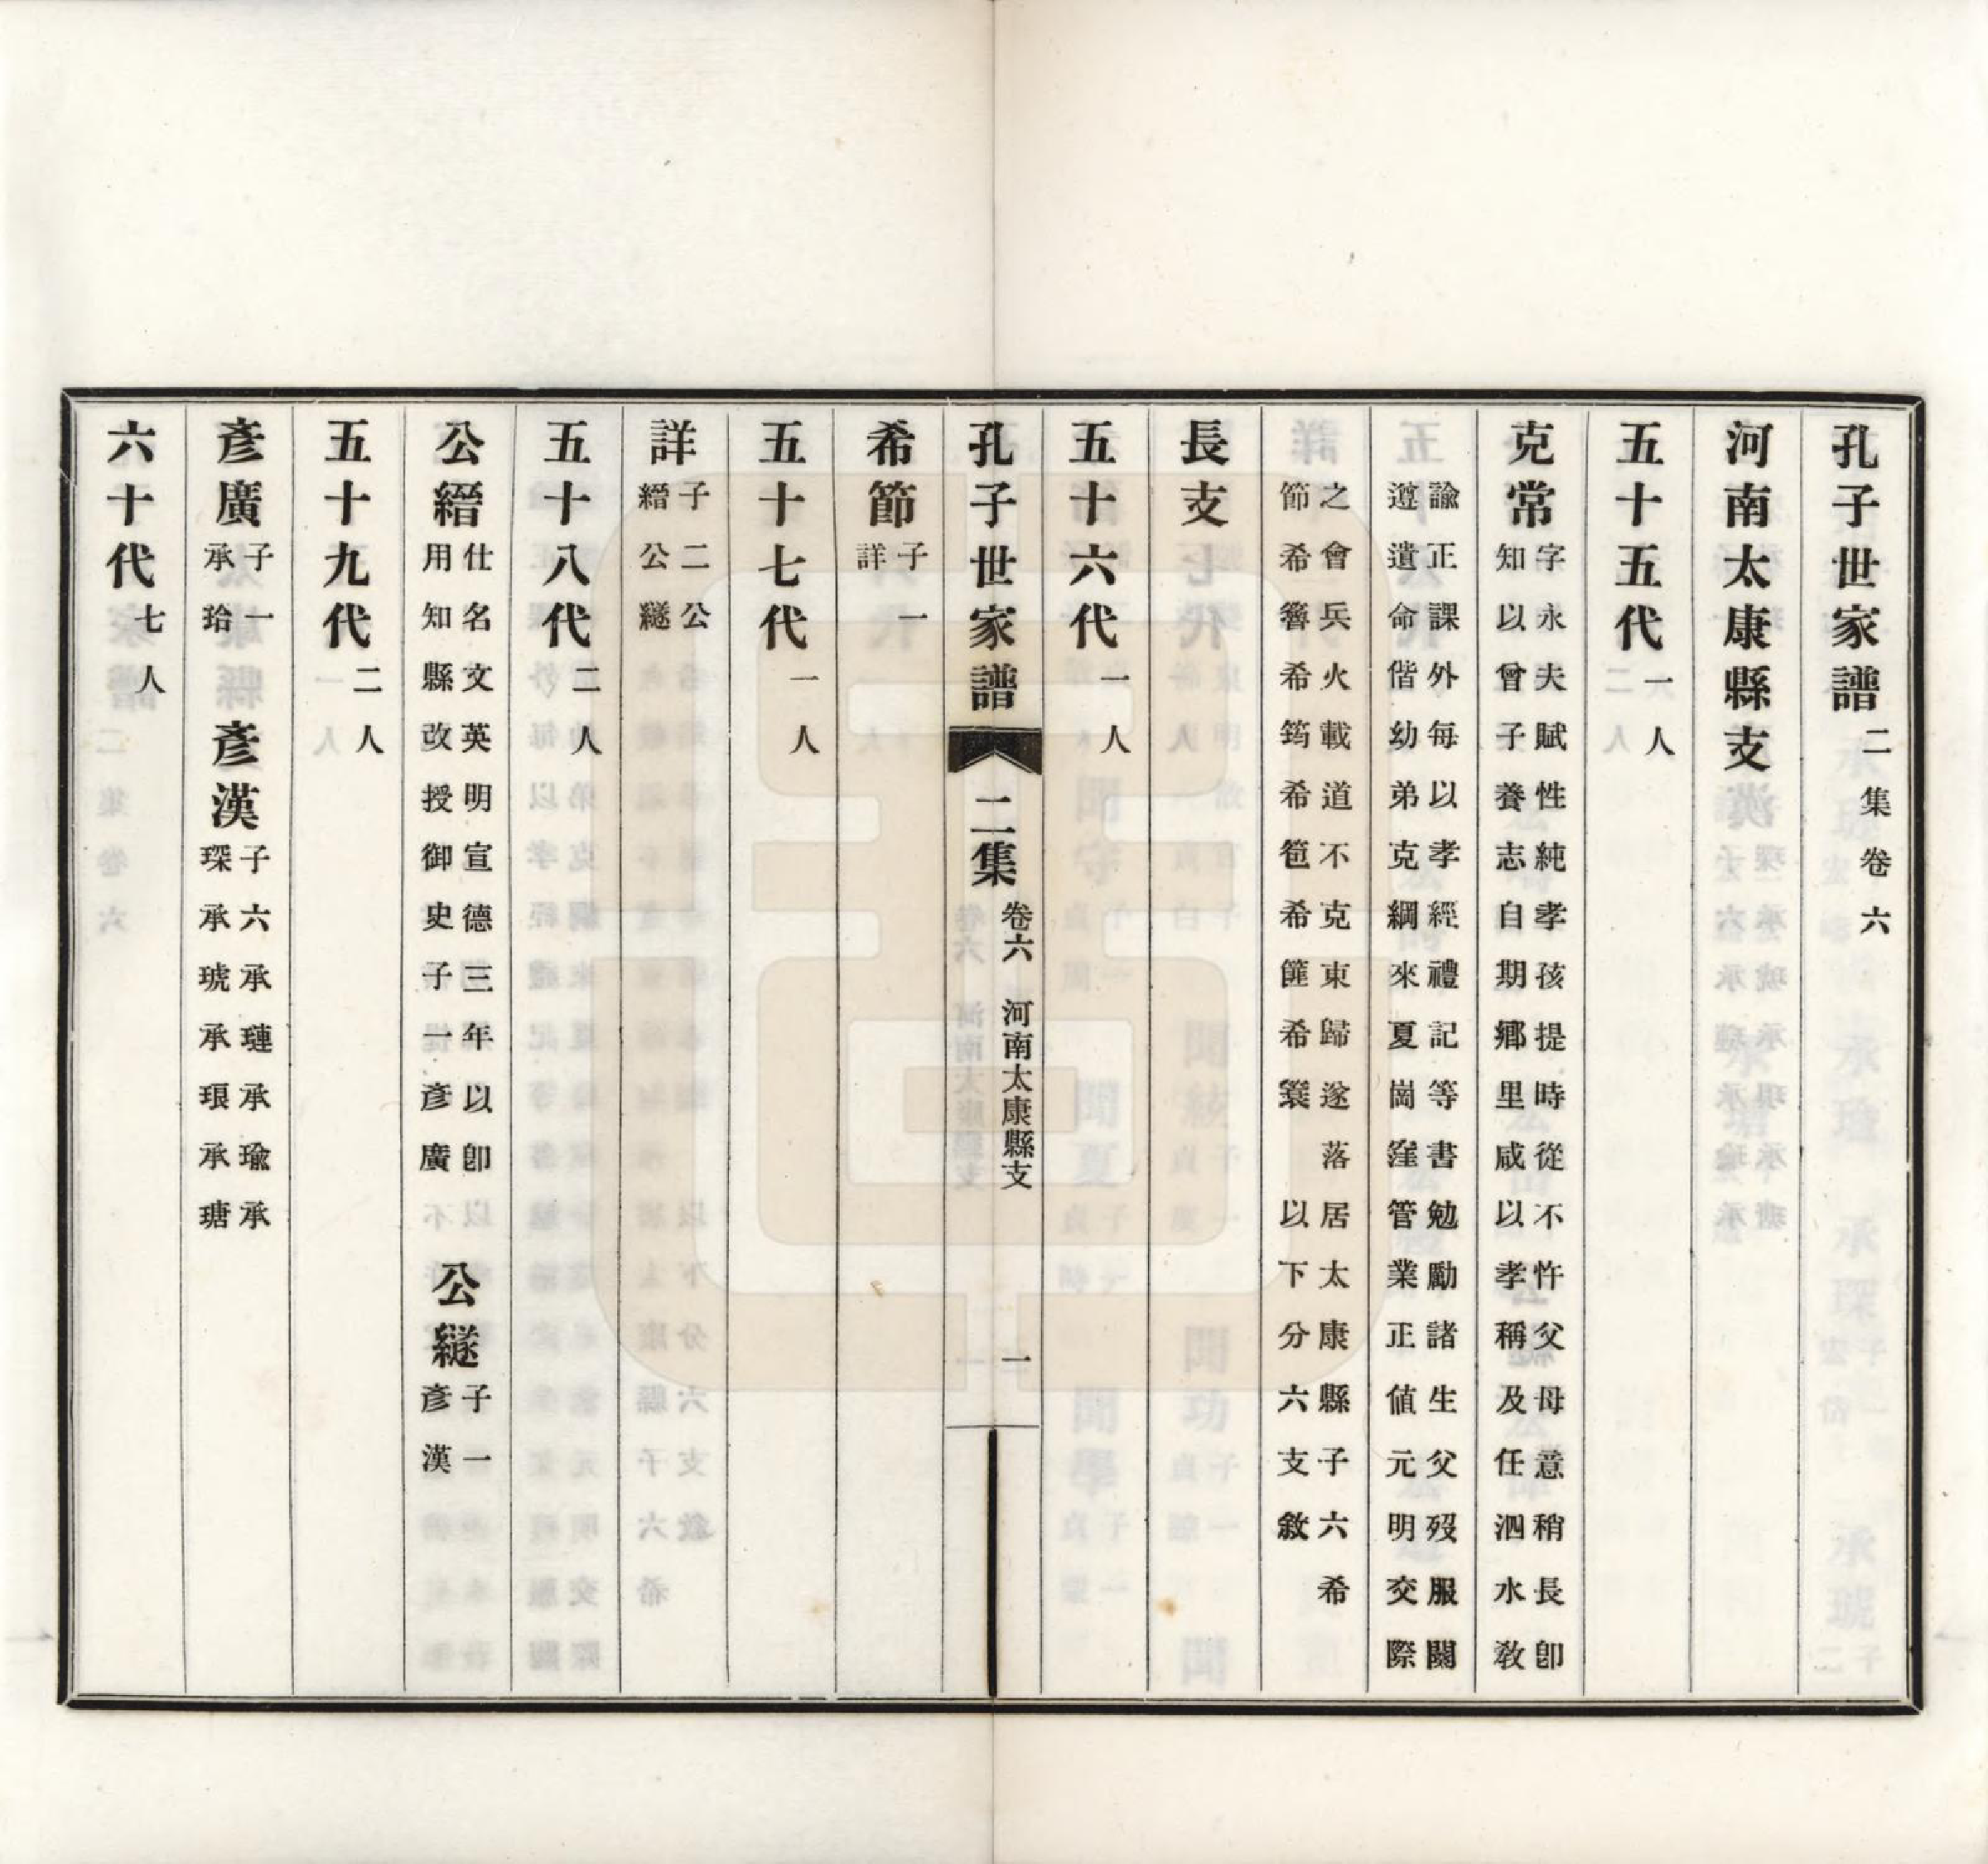 孔子世家譜二集卷六
河南太康縣支
五十五代一人
克常字永夫賦性純孝孩提時從不忤父母意稍長卽
知以曾子養志自期鄉里咸以孝稱及任泗水敎
諭正課外每以孝經禮記等書勉勵諸生父歿服闋
遵遺命偕幼弟克綱來夏崗窪管業正値元明交際
之會兵火載道不克東歸遂落居太康縣子六希
節希籌希筠希笣希篚希簑以下分六支敘
長支
五十六代一人
孔子世家譜 二集 卷六 河南太康縣支 一
希節子一
詳
五十七代一人
詳子二公
縉公繸
五十八代二人
公縉仕名文英明宣德三年以卽
用知縣改授御史子一彥廣
公繸子一
彥漢
五十九代二人
彥廣子一
承珨
彥漢子六承璉承瑜承
琛承琥承珢承瑭
六十代七人